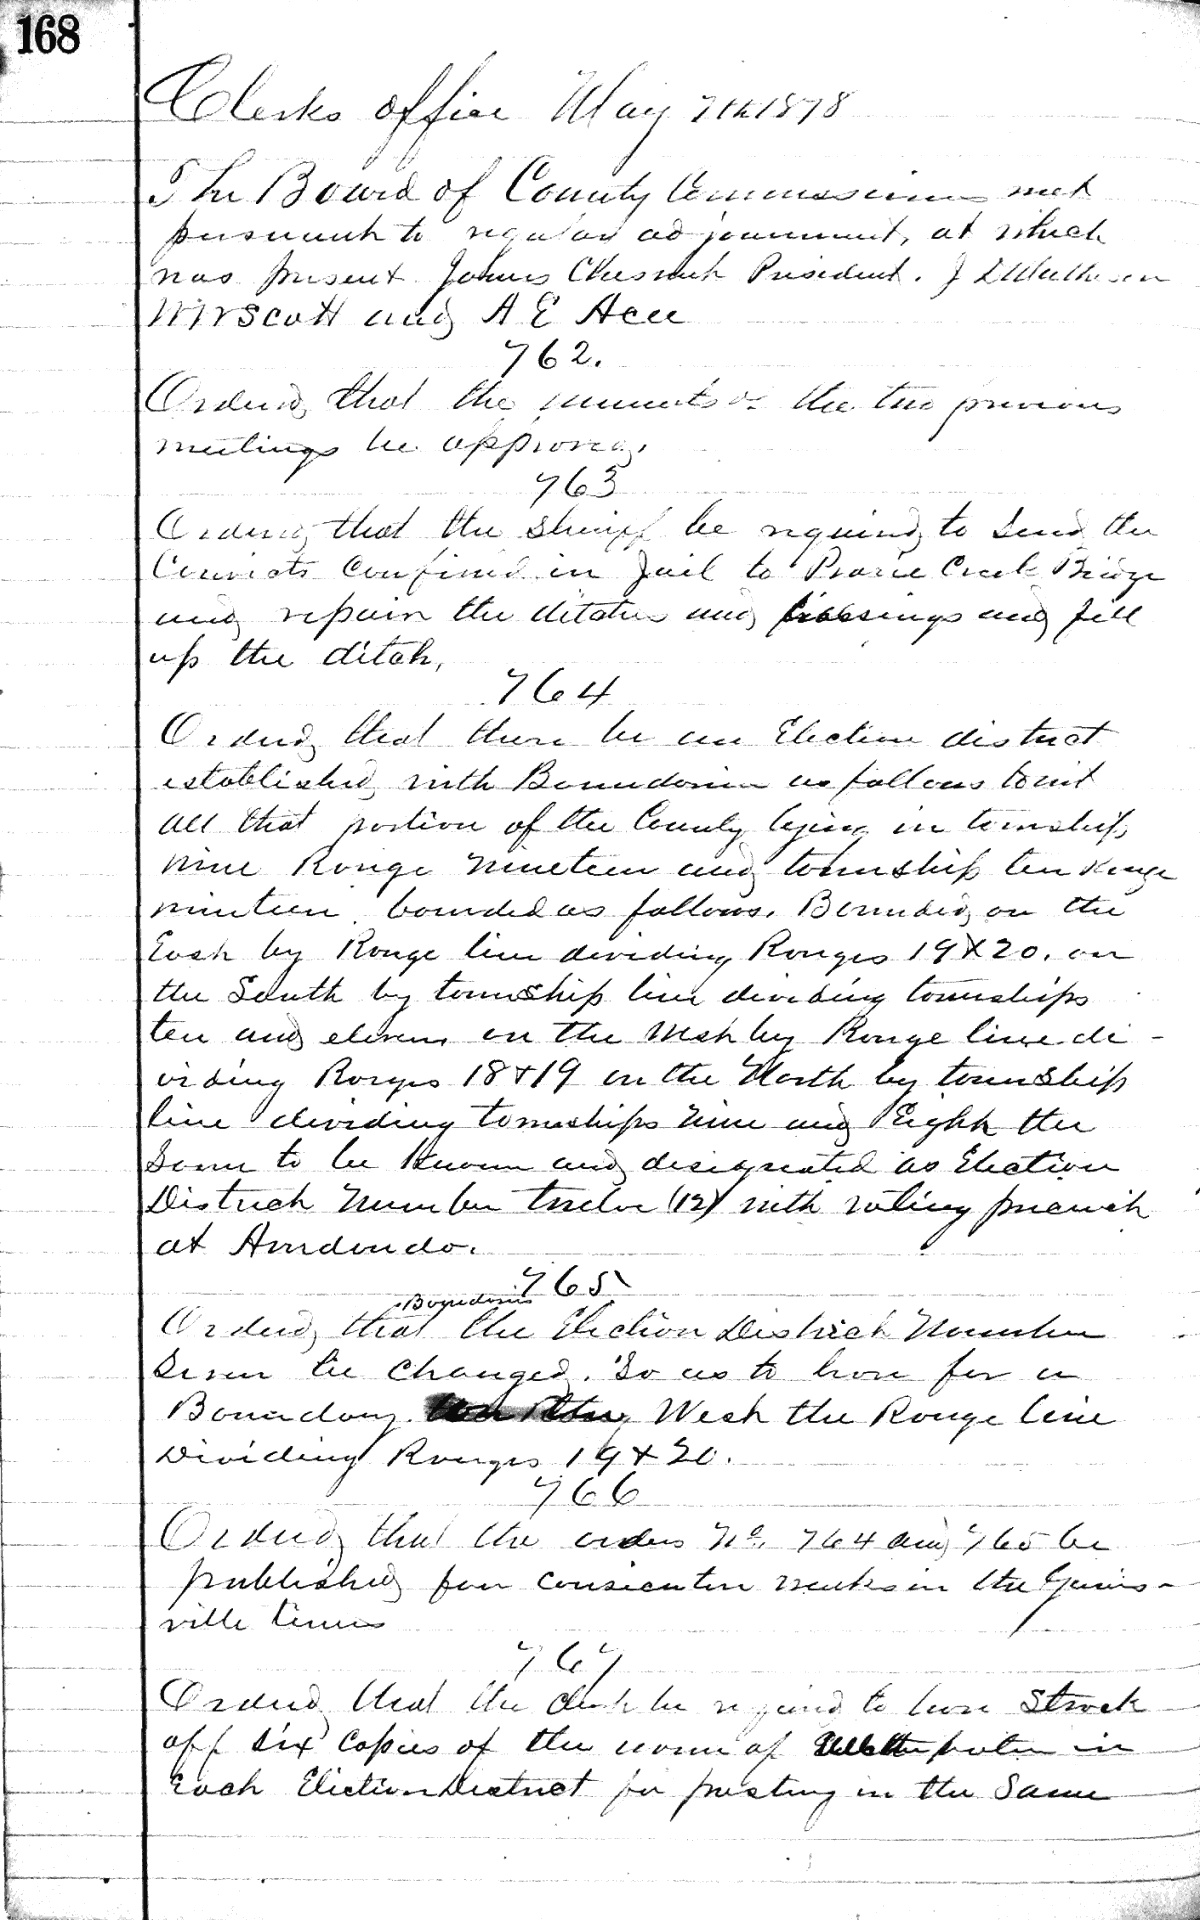 168
Clerks office May 7th 1878
The Board of County Commissioners met
pursuant to regular adjournment, at which
was present James Chesnut President. J
W W Scott and A E
762.
Ordered that the minutes of the two previous
meetings be approved.
763
Ordered that the Sheriff be required to Send the
Convicts Confined in Jail to Prarie Creek Bridge
and repair the ditches and crossings and fill
up the ditch,
764
Ordered that there be an Election district
established with Boundaries as follows towit
All that portion of the County lying in township
nine Range nineteen and township ten Range
nineteen. bounded as follows. Bounded on the
East by Range line dividing Ranges 19 & 20. on
the South by township line dividing townships
ten and eleven on the West by Range line di-
viding Ranges 18 & 19 on the North by township
line dividing townships Nine and Eight the
Same to be Known and designated as Election
District Number twelve (12) with voting precinct
at Arredondo.
765
Boundaries
Ordered that the Election District Number
Seven be Changed. So as to have for a
Boundary West the Range line
Dividing Ranges 19 & 20.
766
Ordered that the orders No. 764 and 765 be
published four consecutive weeks in the Gains-
ville times
767
Ordered that the clerk be required to have Struck
off Six Copies of the name of voter in
Each Election District for posting in the Same